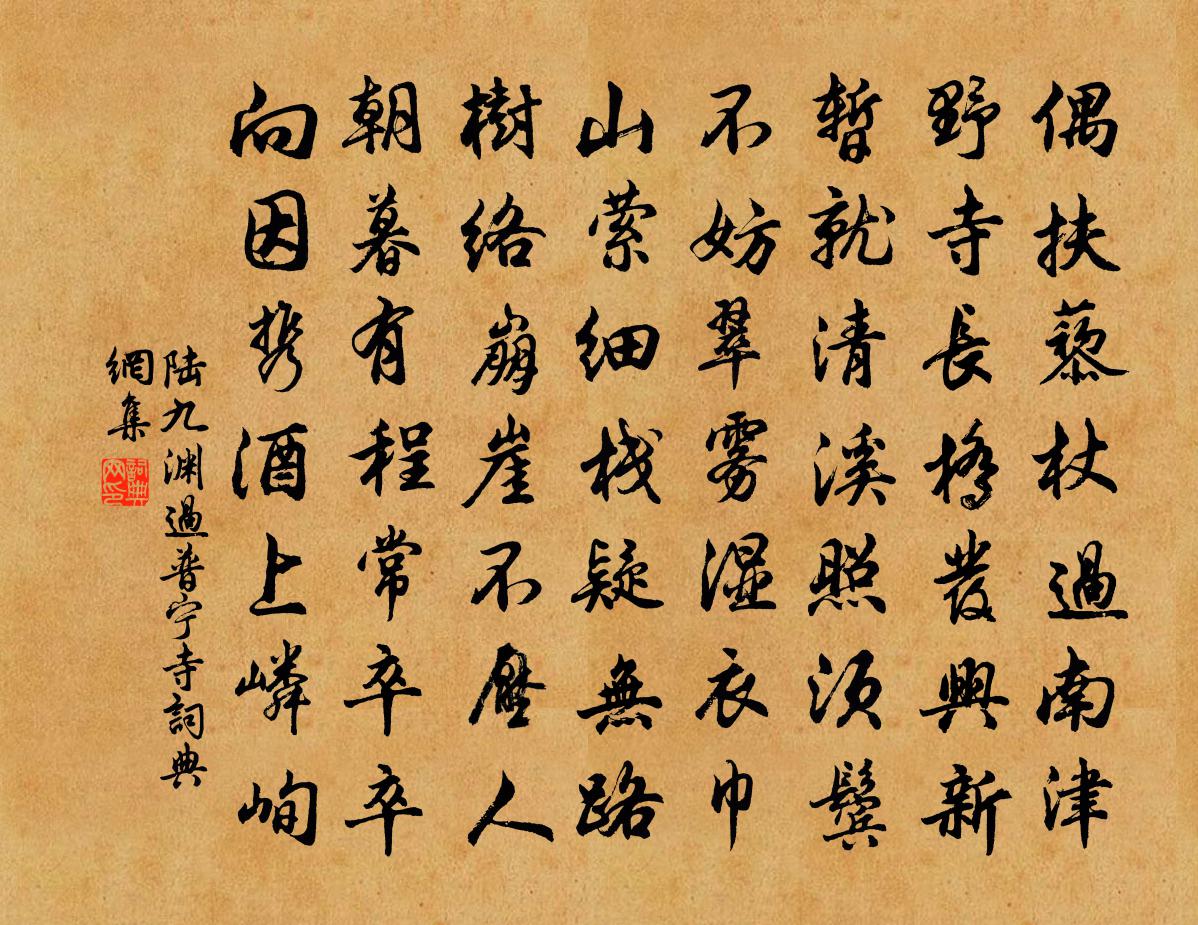 偶扶藜杖過南津
野寺長橋發興新
暫就清溪照須鬢
不妨翠雾濕衣巾
山萦細栈疑無路
樹络崩崖不壓人
朝暮有程常卒卒
向因携酒上嶙峋
陆九渊過普宁寺詞典
網集
詞典
网印